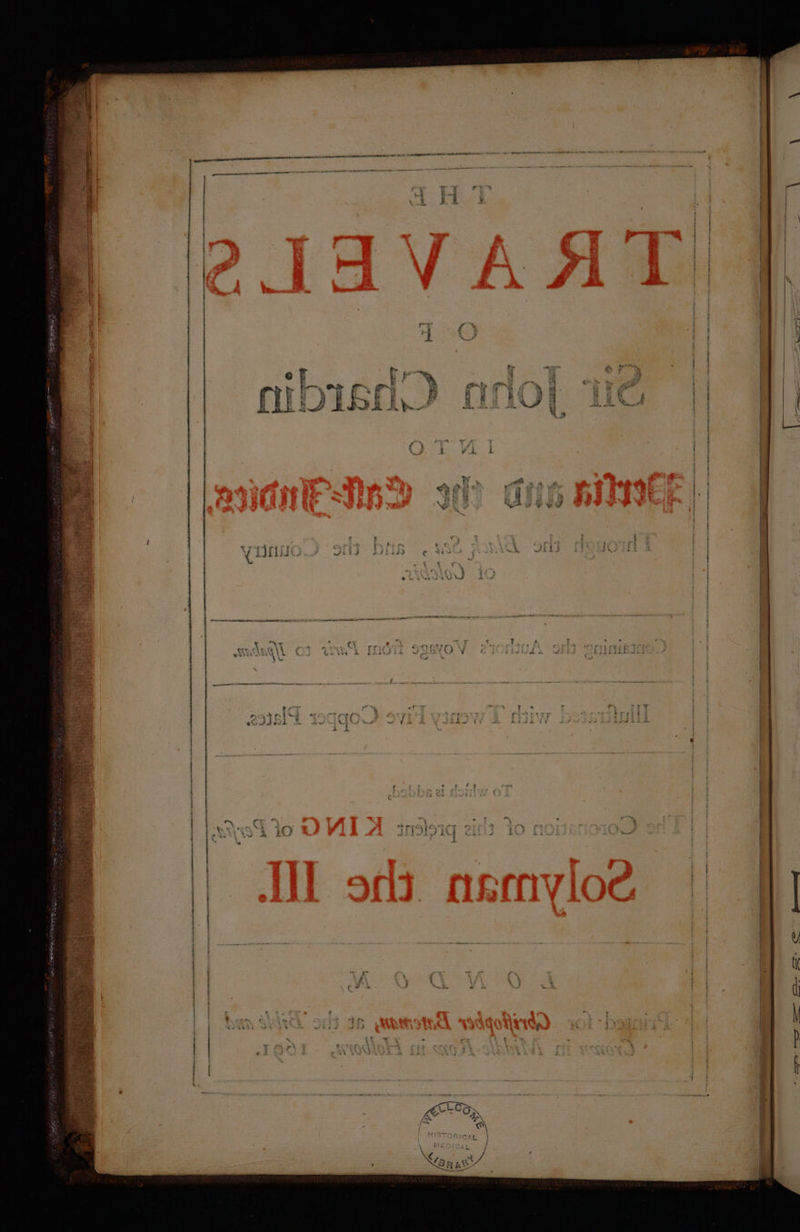 THE
TRAVELS
OF
Sir John Chardin
INTO
Persia and the East-Indies,
Through the Black Sea, and the Country
of Colchis.
Containing the Author's Voyage from Paris to Ispahan.
Illustrated with Twenty five Copper Plates.
To which is added,
The Coronation of this present KING of Persia,
Solyman the III.
LONDON
Printed for Christopher Bateman, at the Bible and
Crown in Middle-Row in Holborn, 1691.
WELLCOME
HISTORICAL
MEDICAL
LIBRARY